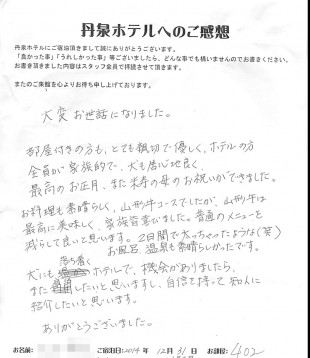 丹泉ホテルへのご感想
丹泉ホテルにご宿泊頂きまして誠にありがとうございます。
「良かった事」「うれしかった事」等ございましたら、どんな事でも構いませんのでお書きください。
お書き頂きました内容はスタッフ全員で拝読させて頂きます。
またのご来館を心よりお待ち申し上げております。
大変お世話になりました。
部屋付きの方も、とても親切で優しく、ホテルの方
全員が家族的で、犬も居心地良く、
最高のお正月、また米寿の母のお祝いができました。
お料理も素晴らしく、山形牛コースでしたが、山形牛は
最高に美味しく、家族皆喜びました。普通のメニューを
減らして良いと思います。2日間で太っちゃったようです(笑)
お風呂、温泉も素晴らしかったです。
犬にも落ち着くホテルで、機会がありましたら、
また利用したいと思いますし、自信を持って知人に
紹介したいと思います。
ありがとうございました。
お名前: ご宿泊日:2014年 12月 31日 お部屋: 402